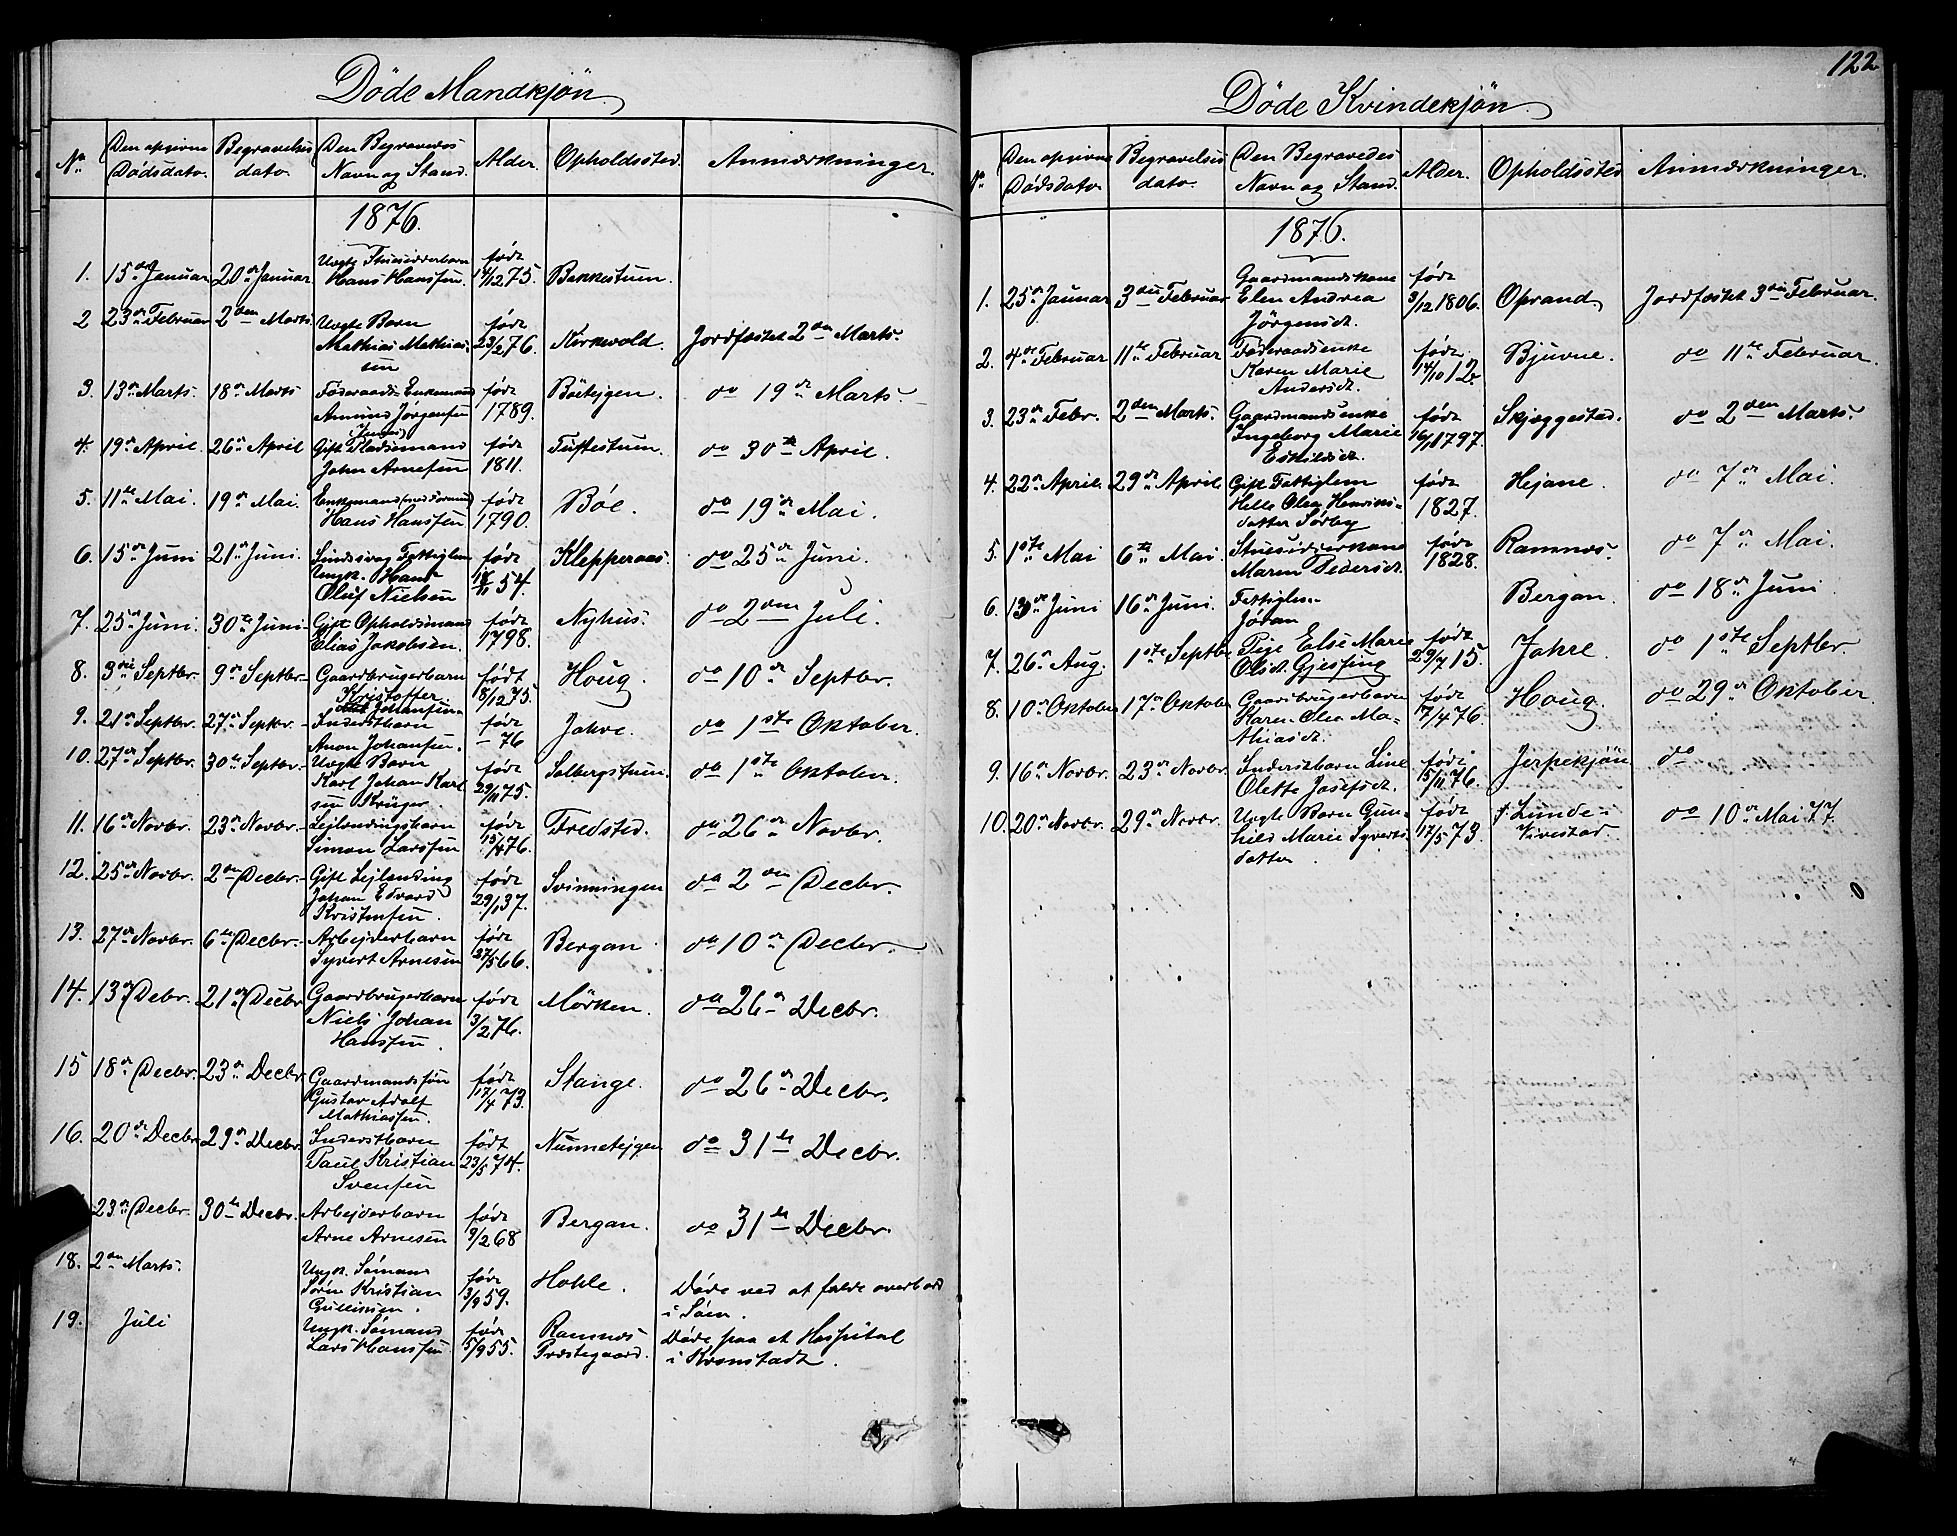 Døde Mandkjøn.
No Den opgivne Dødsdato. Begravelsesdato. Den Begravedes Navn og Stand. Alder. Opholdssted. Anmærkninger.
1876.
1. 15de Januar 20de Januar Uægte Barn Hans Hanssen. født 14/12 75. Bakkestuen.
2 23de Februar 2den Marts. Uægte Barn Mathias Mathiassen født 23/2 76. Kirkevold. Jordfæstet 2den Marts.
3. 13de Marts. 18de Marts Føderaads-Enkemand Amund Jørgensen født 1789. Bøetejgen. do 19de Marts
4. 19de April. 26de April Gift Pladsemand John Arnesen født 1811. Tuftestuen. do 30te April.
5. 11te Mai. 19de Mai. Enkemand Hans Hanssen født 1790. Bøe. do 19de Mai.
6. 15de Juni 21de Juni. Sindssvag Fattiglem Ungk. Hans Oluf Nielsen født 54. Klepperaas. do 25de Juni.
7. 25de Juni. 30te Juni Gift Opholdsmand Elias Jakobsen. født 1798. Nyhus. do 2den Juli.
8. 3die Septbr. 9de Septbr. Gaardbrugerbarn Kristoffer Johansen født 8/12 75. Houg. do 10de Septbr.
9. 21de Septbr. 27de Septbr. Inderstbarn Anon Johansen. født – 76 Jahre. do 1ste Oktober.
10. 27de Septbr. 30te Septbr. Uægte Barn Karl Johan Karlsen Krüger. født 29/11 75. Solbergstuen. do 1ste Oktober.
11. 16de Novbr. 23de Novbr. Lejlendingsbarn Simon Larssen født 15/4 76. Fredsted. do 26de Novbr.
12. 25de Novbr. 2den Decbr. Gift Lejlending Johan Edvard Kristensen. født 29/1 37. Svinningen do 2den Decbr.
13. 27de Novbr. 6te Decbr. Arbejderbarn Syvert Arnesen født 27/5 66. Bergan do 10de Decbr.
14. 13de Debr. 21de Decbr Gaardbrugerbarn Niels Johan Hanssen. født 3/2 76. Mørken. do 26de Decbr.
15 18de Decbr. 23de Decbr. Gaardmandssøn Gustav Adolf Mathiassen. født 17/4 73. Stange. do 26de Decbr.
16. 20de Decbr 29de Decbr. Inderstbarn Paul Kristian Svensen født 23/5 74. Nunnetejgen do 31te Decbr.
23de Decbr. 30te Decbr. Arbejderbarn Arne Arnesen født 9/2 68 Bergan. do 31te Decbr.
18. 2den Marts. Ungk. Sømand Søren Kristian Gulliksen. født 3/9 59. Hohle. Døde ved at falde overbord i Søen.
19. Juli Ungk. Sømand Lars Hanssen født 5/9 55. Ramnes Præstegaard. Døde paa et Hospital i Kronstadt.
122
Døde Kvindekjøn.
No Den opgivne Dødsdato. Begravelsesdato. Den Begravedes Navn og Stand. Alder. Opholdssted Anmærkninger.
1876.
1. 25de Januar 3die Februar Gaardmandskone Elen Andrea Jørgensdt. født 3/12 1806. Oprand. Jordfæstet 3die Februar.
2. 4de Februar 11te Februar Føderaadsenke Karen Marie Andersdt. født 14/10 12. Bjuvne. do 11te Februar
3. 23de Febr. 2den Marts. Gaardmandsenke Ingeborg Marie Eskildsdt. født 16/1 1797. Skjeggestad. do 2den Marts.
4. 22de April. 29de April. Gift Fattiglem Helle Olea Henriksdatter Sørby født 1827. Hejane. do 7de Mai.
5. 1ste Mai 6te Mai. Stuesidderkone Maren Pedersdt. født 1828. Ramnes. do 7de Mai.
6. 13de Juni 16de Juni. Fattiglem Jøran Bergan. do 18de Juni
7. 26de Aug. 1ste Septbr. Pige Else Marie Olsdt. Gjessing født 29/7 15. Jahre. do 1ste Septbr.
8. 10de Oktober 17de Oktober Gaardbrugerbarn Karen Olea Mathiasdt. født 7/4 76. Houg. do 29de Oktober
9. 16de Novbr. 23de Novbr. Inderstbarn Line Olette Josefsdt. født 15/11 76. Jerpekjøn do
10. 20de Novbr. 29de Novbr. Uægte Barn Gunhild Marie Syvertsdatter født 17/5 73. f. Lunde i Vivestad do 10de Mai 77.